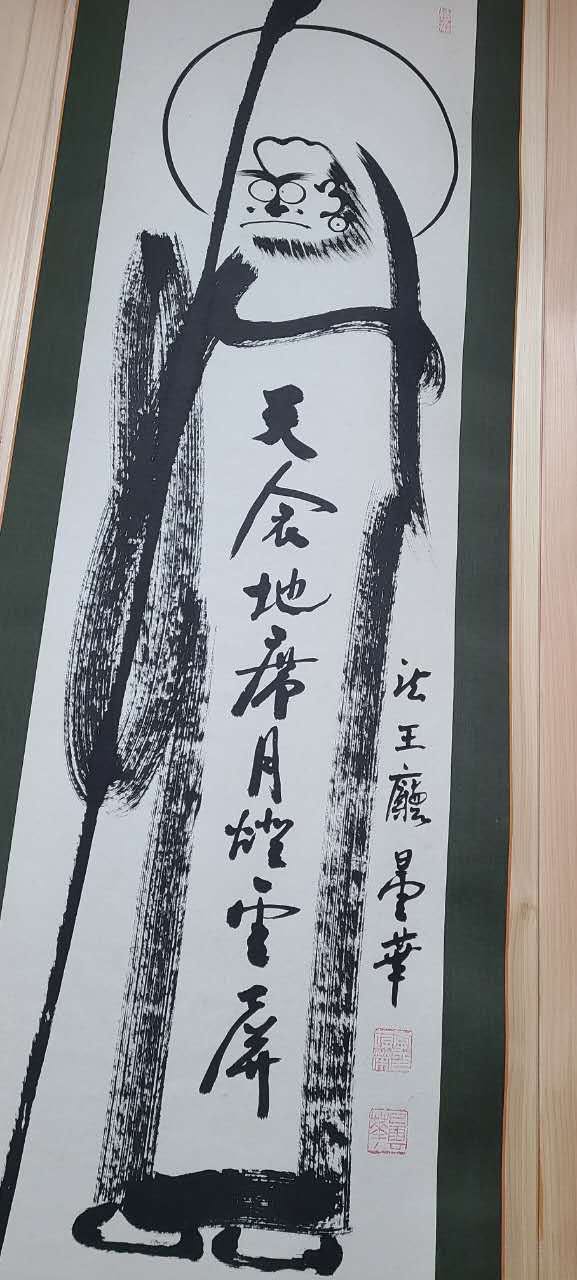 天衾地席月燈雲屏
法王廳 曇華